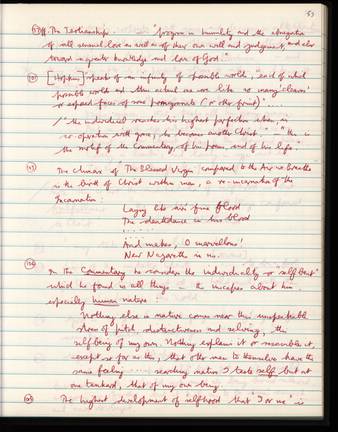 53
The Tertianship "progress in humility and the abnegation
of all sensual love as well as of their own will and judgment, and also
toward a greater knowledge and love of God."
[Hopkins] speaks of "an infinity of possible worlds, each of which
possible world and this actual one are like so many 'cleaves'
or exposed faces of some pomegranate (or other fruit)"
/ "the individual reaches his highest perfection when, in
co-operation with grace, he becomes another Christ." — "this is
the motif of the Commentary, of his poems, and of his life."
The climax of The Blessed Virgin compared to the Air we Breathe
is the birth of Christ within man, a re-incarnation of the
Incarnation:
Laying like air's fine flood
The deathdance in his blood
......
And makes, O marvellous!
New Nazareths in us.
In the Commentary he considers the individuality or "selfbeat"
which he found in all things — the inscapes about him,
especially human nature:
'Nothing else in nature comes near this unspeakable
stress of pitch, distinctiveness and selving, this
selfbeing of my own. Nothing explains it or resembles it,
except so far as this, that other men to themselves have the
same feeling ..... searching nature I taste self but at
one tankard, that of my own being.
The highest development of selfhood that 'I or me' is